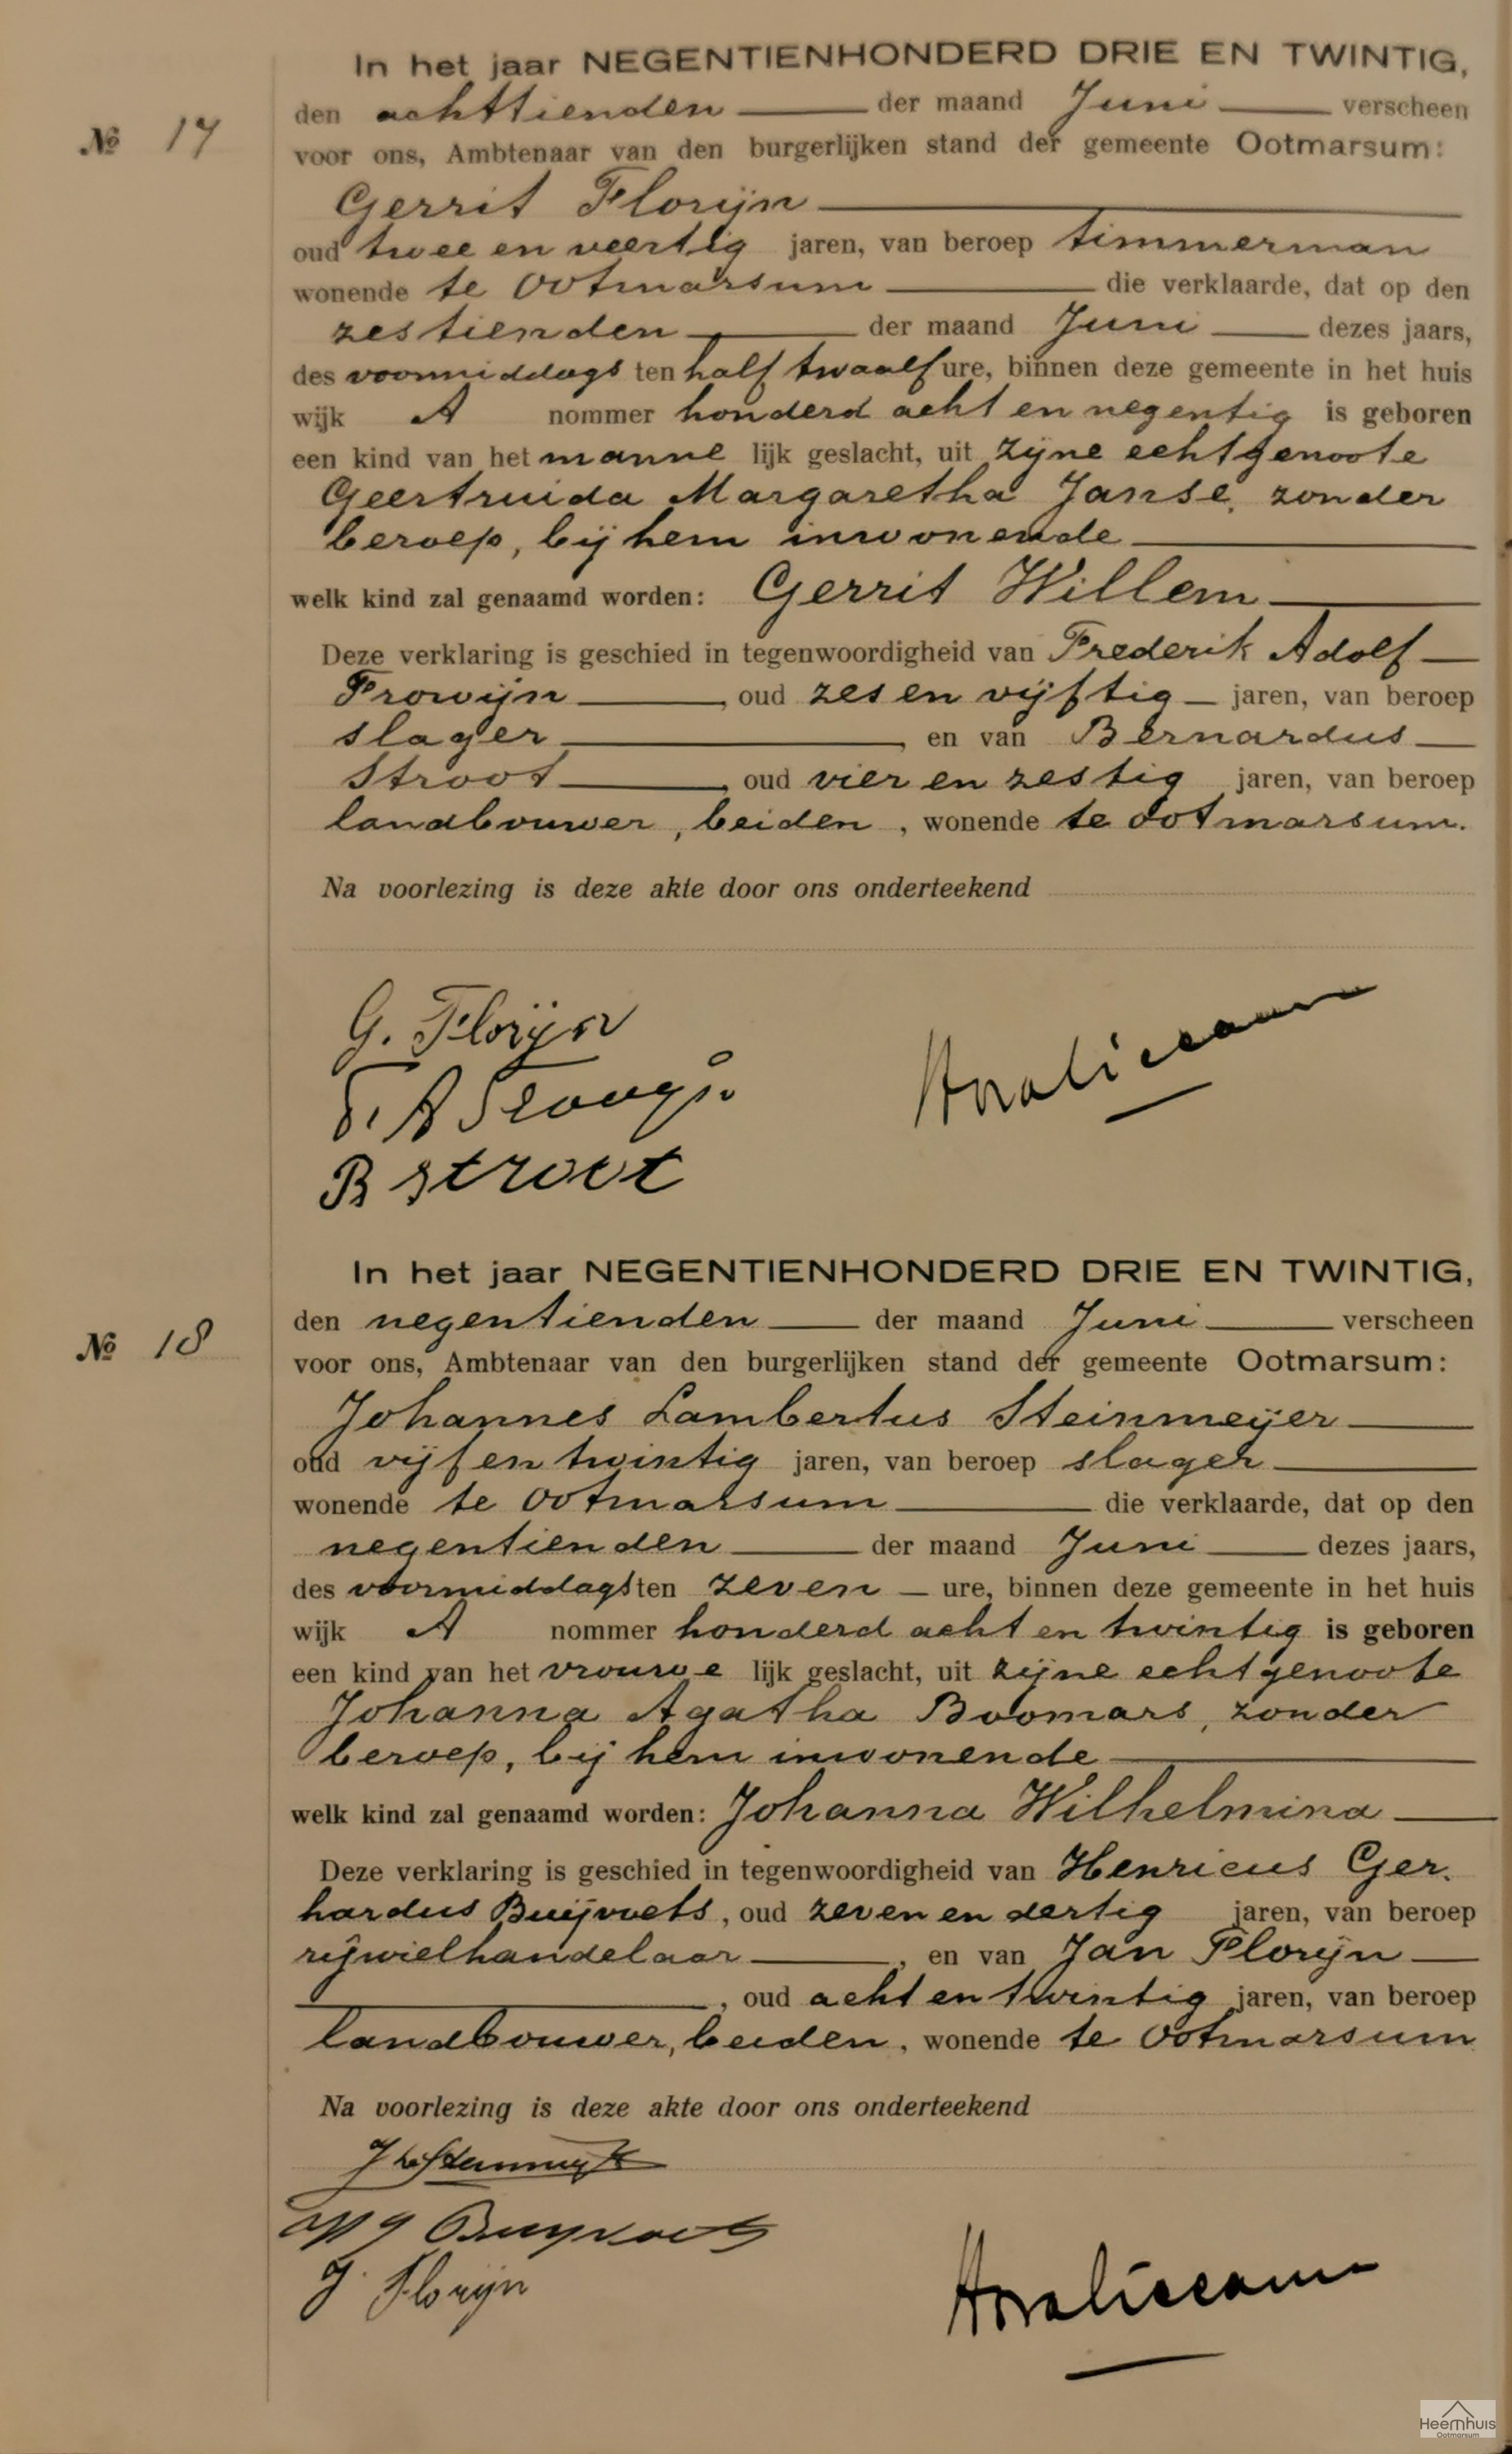 In het jaar NEGENTIENHONDERD DRIE EN TWINTIG,
den achttienden der maand Juni verscheen
№ 17
voor ons, Ambtenaar van den burgerlijken stand der gemeente Ootmarsum:
Gerrit Florijn
oud twee en veertig jaren, van beroep timmerman
wonende te Ootmarsum die verklaarde, dat op den
zestienden der maand Juni dezes jaars,
des voormiddags ten half twaalf ure, binnen deze gemeente in het huis
wijk A nommer honderd acht en negentig is geboren
een kind van het manne lijk geslacht, uit zijne echtgenoote
Geertruida Margaretha Janse, zonder
beroep, bij hem inwonende
welk kind zal genaamd worden: Gerrit Willem
Deze verklaring is geschied in tegenwoordigheid van Frederik Adolf
Frowijn, oud zes en vijftig jaren, van beroep
slager, en van Bernardus
Stroot, oud vier en zestig jaren, van beroep
landbouwer, beiden, wonende te Ootmarsum.
Na voorlezing is deze akte door ons onderteekend
G. Florijn
F. A Frowijn
B stroot
In het jaar NEGENTIENHONDERD DRIE EN TWINTIG,
den negentienden der maand Juni verscheen
№ 18
voor ons, Ambtenaar van den burgerlijken stand der gemeente Ootmarsum:
Johannes Lambertus Steinmeijer
oud vijf en twintig jaren, van beroep slager
wonende te Ootmarsum die verklaarde, dat op den
negentienden der maand Juni dezes jaars,
des voormiddags ten zeven ure, binnen deze gemeente in het huis
wijk A nommer honderd acht en twintig is geboren
een kind van het vrouwe lijk geslacht, uit zijne echtgenoote
Johanna Agatha Boomars, zonder
beroep, bij hem inwonende
welk kind zal genaamd worden: Johanna Wilhelmina
Deze verklaring is geschied in tegenwoordigheid van Henricus Ger.
hardus Buijvoets, oud zeven en dertig jaren, van beroep
rijwielhandelaar, en van Jan Florijn
, oud acht en twintig jaren, van beroep
landbouwer, beiden, wonende te Ootmarsum
Na voorlezing is deze akte door ons onderteekend
J. Florijn
Heemhuis
Ootmarsum